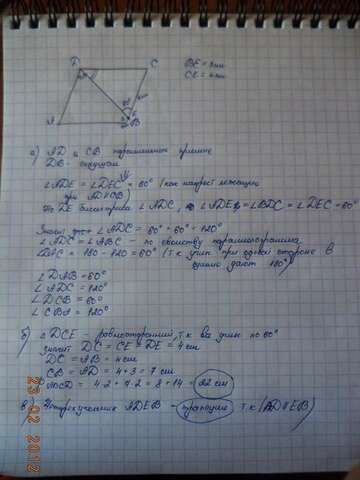 D C
BE = 3 см
CE = 4 см
60
A B
а) AD и CB параллельные прямые
DE - секущая
∠ADE = ∠DEC = 60° (как накрест лежащие
при AD∥CB)
DE биссектриса ∠ADC, ∠ADE = ∠EDC = ∠DEC = 60°
Значит угол ∠ADC = 60° + 60° = 120°
∠ADC = ∠ABC - по свойству параллелограмма
∠BAC = 180 - 120 = 60° (т.к углы при одной стороне в
сумме дают 180°)
∠DAB = 60°
∠ADC = 120°
∠DCB = 60°
∠CBA = 120°
б) △DCE - равносторонний, т.к все углы по 60°
значит DC = CE = DE = 4 см
DC = AB = 4 см
CB = AD = 4 + 3 = 7 см
4·2 + 7·2 = 8 + 14 = 22 см
в) Четырехугольник ADEB - трапеция т.к (AD∥EB)
23-02-2012